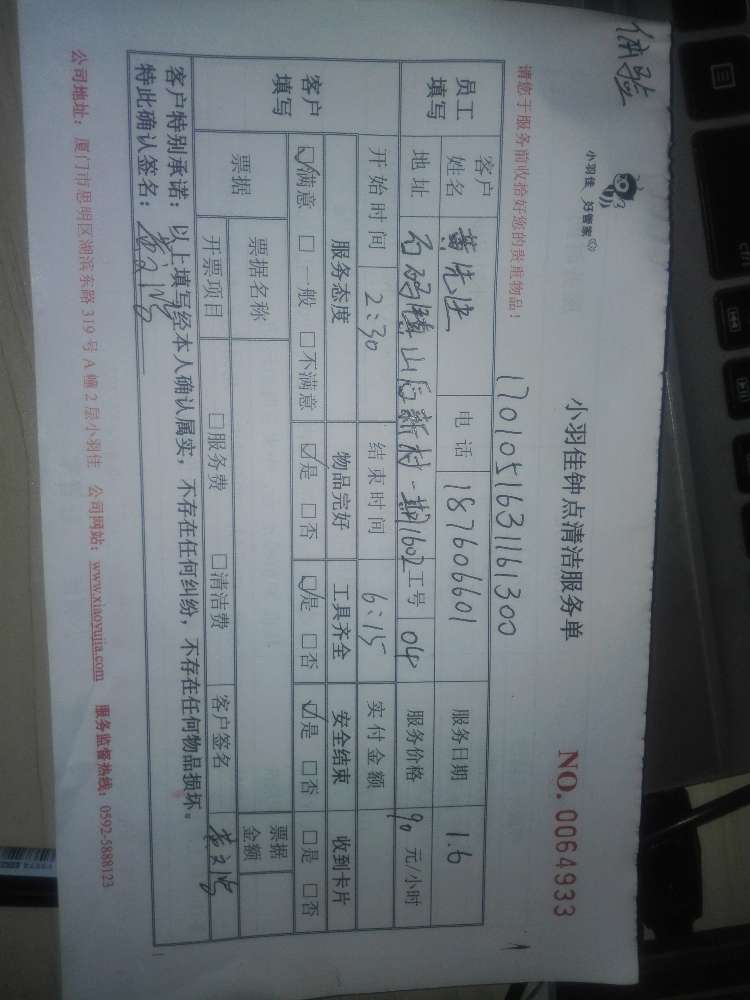 体验
小羽佳 好管家
小羽佳钟点清洁服务单
NO. 0064933
请您于服务前收拾好您的贵重物品！
1701051631161300
员工填写
客户姓名 黄先生 电话 187606601 服务日期 1.6
地址 石码镇山后新村一期1602 工号 04 服务价格 90 元/小时
开始时间 2:30 结束时间 6:15 实付金额
客户填写
服务态度 物品完好 工具齐全 安全结束 收到卡片
☑满意 □一般 □不满意 ☑是 □否 ☑是 □否 ☑是 □否 □是 □否
票据 票据名称 票据金额
开票项目 □服务费 □清洁费 客户签名
客户特别承诺：以上填写经本人确认属实，不存在任何纠纷，不存在任何物品损坏。
特此确认签名：
公司地址：厦门市思明区湖滨东路319号A幢2层小羽佳 公司网站：www.xiaoyujia.com 服务监督热线：0592-5888123